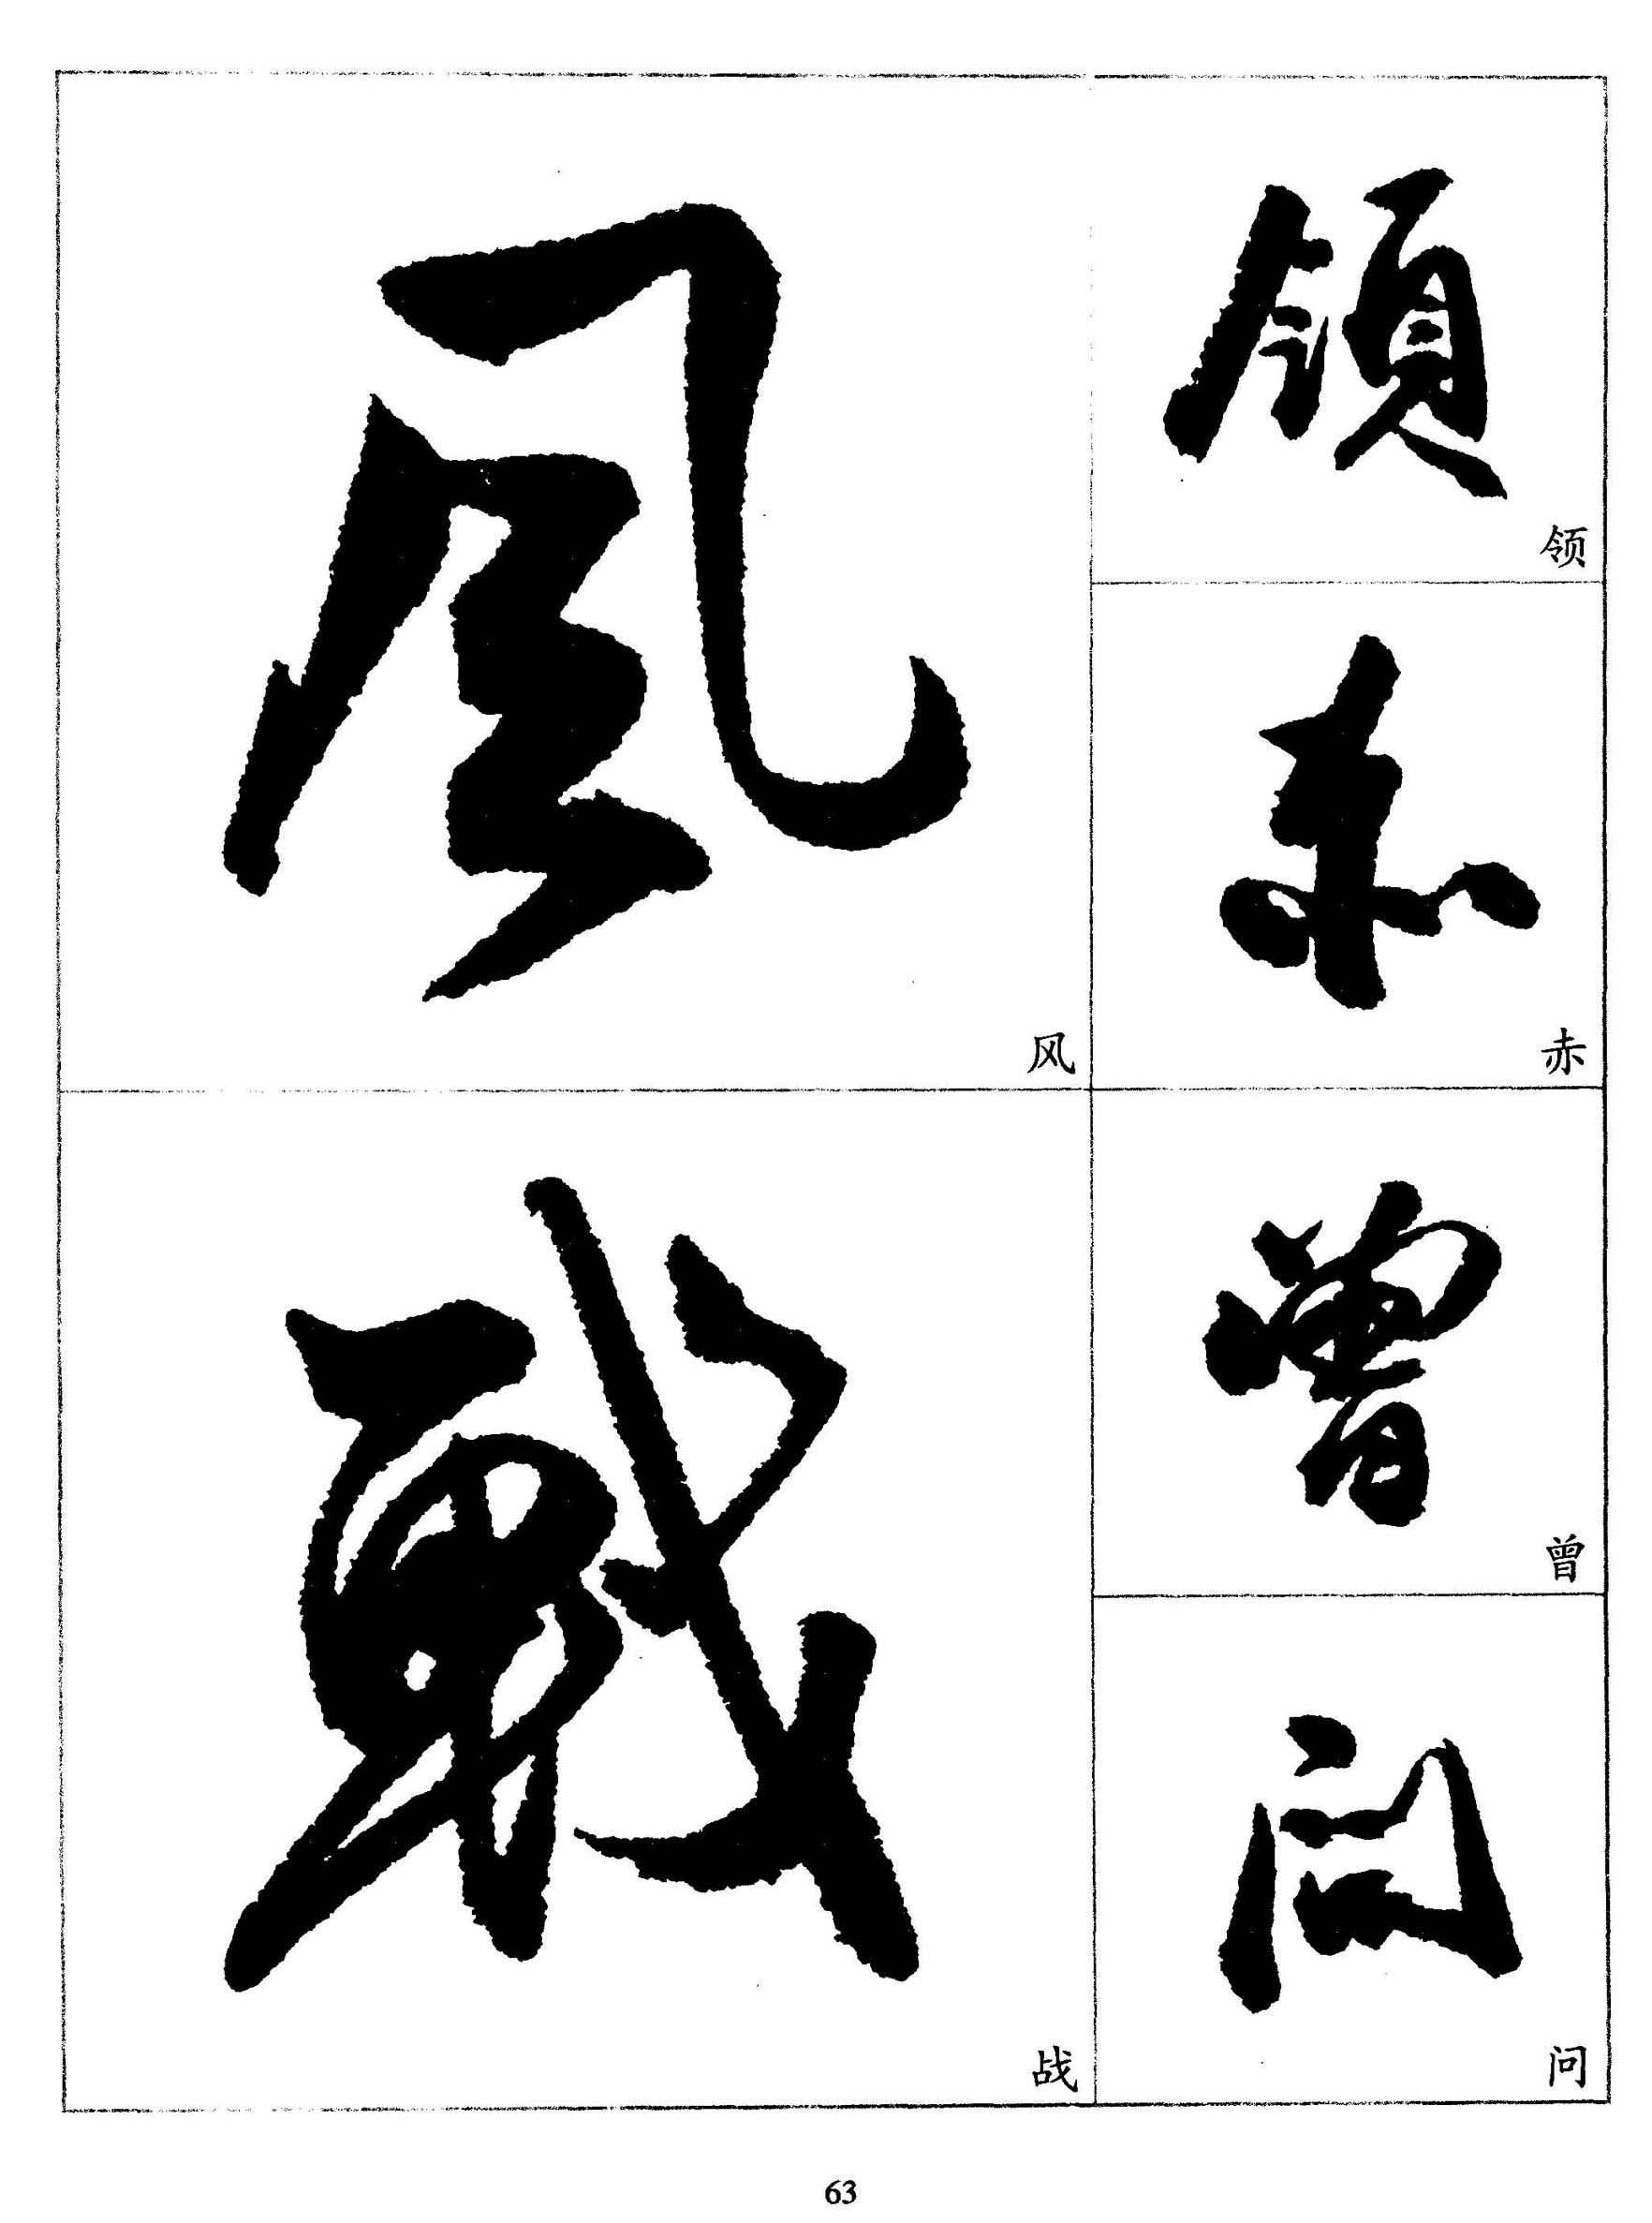 領
领
赤
赤
曾
曾
问
问
風
风
戰
战
63